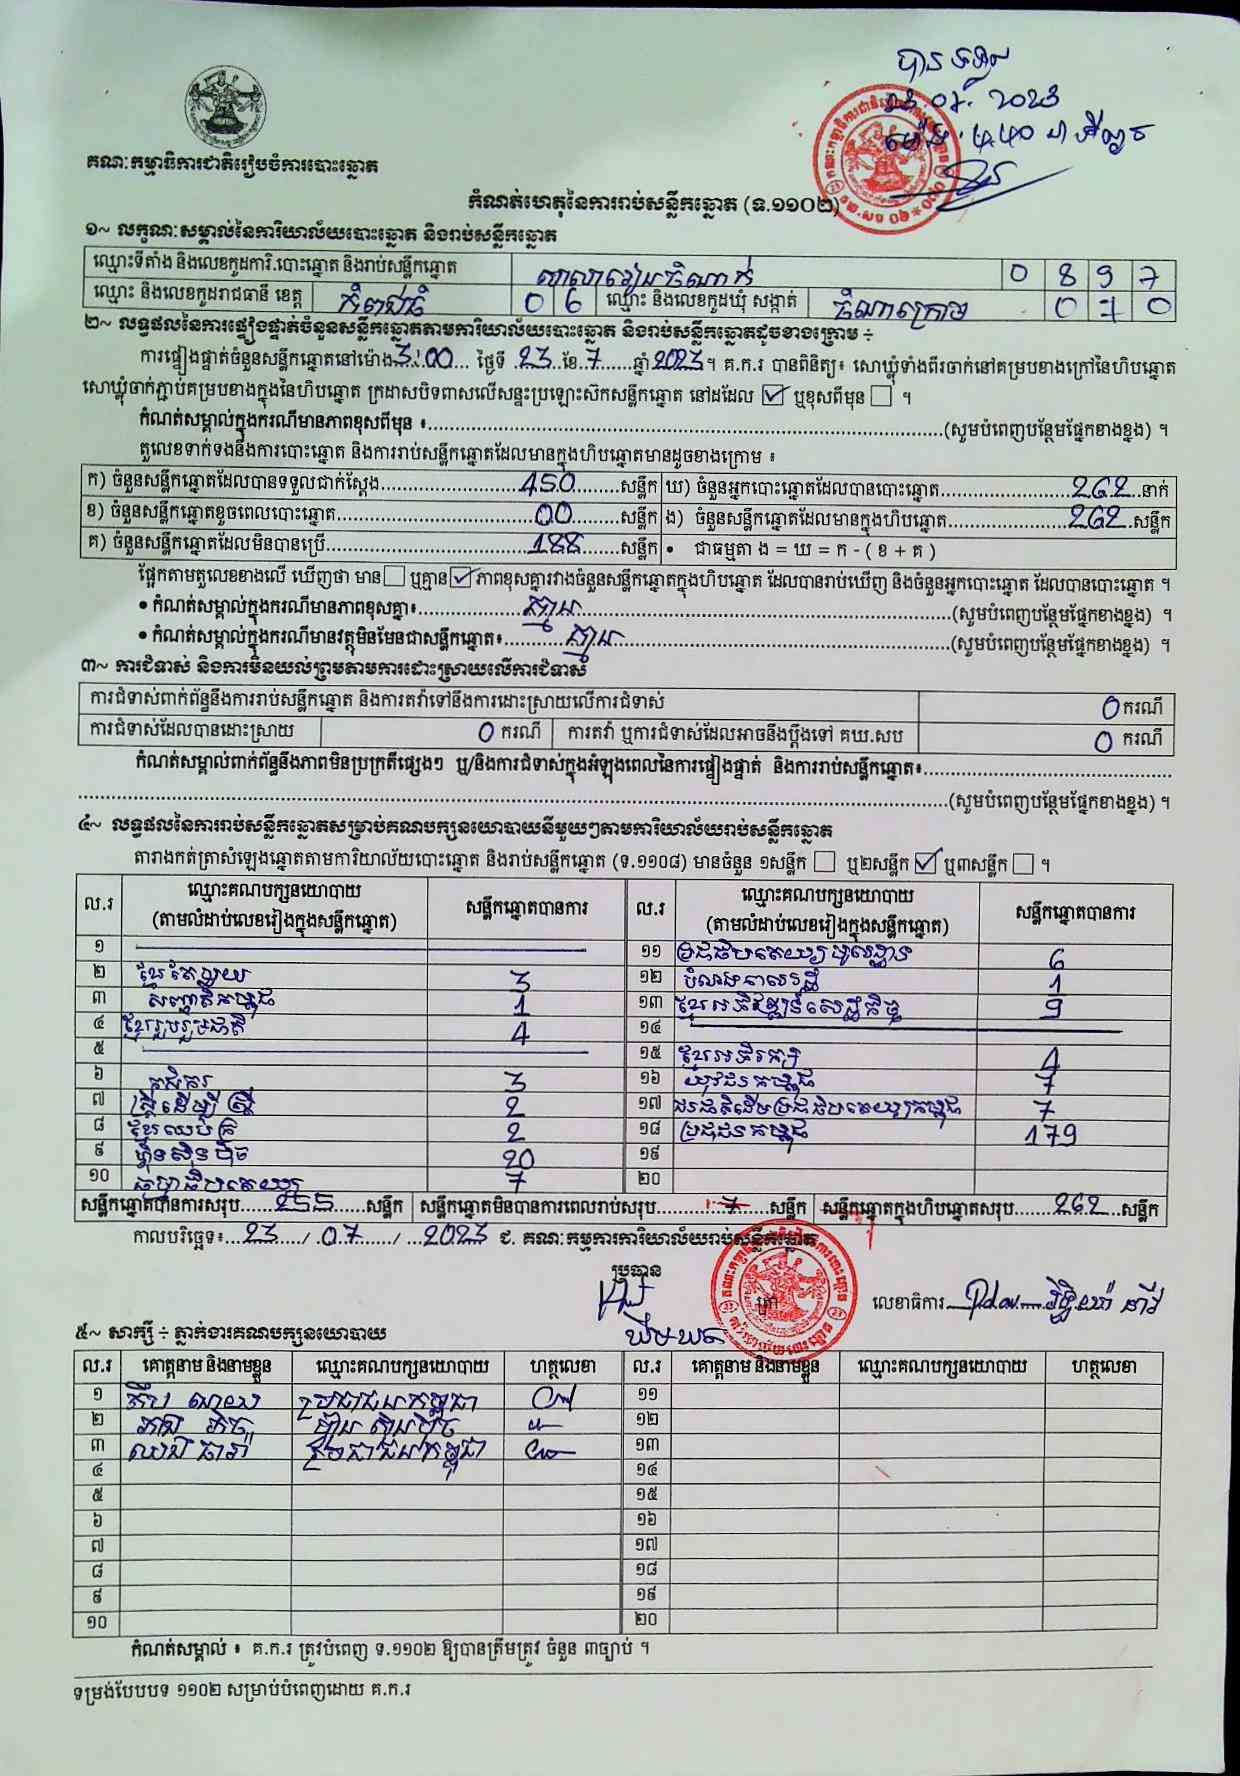 បានទទួល
គណៈកម្មាធិការជាតិរៀបចំការបោះឆ្នោត
កំណត់ហេតុនៃការរាប់សន្លឹកឆ្នោត (ទ.១១០២)
១~ លក្ខណៈសម្គាល់នៃការិយាល័យបោះឆ្នោត និងរាប់សន្លឹកឆ្នោត
ឈ្មោះទីតាំង និងលេខកូដការិ.បោះឆ្នោត និងរាប់សន្លឹកឆ្នោត 0 8 9 7
ឈ្មោះ និងលេខកូដរាជធានី ខេត្ត កំពង់ធំ 0 6 ឈ្មោះ និងលេខកូដឃុំ សង្កាត់ ចំណារក្រោម 0 7 0
២~ លទ្ធផលនៃការផ្ទៀងផ្ទាត់ចំនួនសន្លឹកឆ្នោតតាមការិយាល័យបោះឆ្នោត និងរាប់សន្លឹកឆ្នោតដូចខាងក្រោម ÷
ការផ្ទៀងផ្ទាត់ចំនួនសន្លឹកឆ្នោតនៅម៉ោង 3:00 ថ្ងៃទី 23 ខែ 7 ឆ្នាំ 2023 ។ គ.ក.រ បានពិនិត្យ៖ សោឃ្លុំទាំងពីរចាក់នៅគម្របខាងក្រៅនៃហិបឆ្នោត
សោឃ្លុំចាក់ភ្ជាប់គម្របខាងក្នុងនៃហិបឆ្នោត ក្រដាសបិទពាសលើសន្ទះប្រឡោះស៊កសន្លឹកឆ្នោត នៅដដែល ☑ ឬខុសពីមុន ☐ ។
កំណត់សម្គាល់ក្នុងករណីមានភាពខុសពីមុន ៖ (សូមបំពេញបន្ថែមផ្នែកខាងខ្នង) ។
តួលេខទាក់ទងនឹងការបោះឆ្នោត និងការរាប់សន្លឹកឆ្នោតដែលមានក្នុងហិបឆ្នោតមានដូចខាងក្រោម ៖
ក) ចំនួនសន្លឹកឆ្នោតដែលបានទទួលជាក់ស្តែង 450 សន្លឹក ឃ) ចំនួនអ្នកបោះឆ្នោតដែលបានបោះឆ្នោត 262 នាក់
ខ) ចំនួនសន្លឹកឆ្នោតខូចពេលបោះឆ្នោត 00 សន្លឹក ង) ចំនួនសន្លឹកឆ្នោតដែលមានក្នុងហិបឆ្នោត 262 សន្លឹក
គ) ចំនួនសន្លឹកឆ្នោតដែលមិនបានប្រើ 188 សន្លឹក • ជាធម្មតា ង = ឃ = ក - ( ខ + គ )
ផ្អែកតាមតួលេខខាងលើ ឃើញថា មាន ☐ ឬគ្មាន ☑ ភាពខុសគ្នារវាងចំនួនសន្លឹកឆ្នោតក្នុងហិបឆ្នោត ដែលបានរាប់ឃើញ និងចំនួនអ្នកបោះឆ្នោត ដែលបានបោះឆ្នោត ។
• កំណត់សម្គាល់ក្នុងករណីមានភាពខុសគ្នា៖ គ្មាន (សូមបំពេញបន្ថែមផ្នែកខាងខ្នង) ។
• កំណត់សម្គាល់ក្នុងករណីមានវត្ថុមិនមែនជាសន្លឹកឆ្នោត៖ គ្មាន (សូមបំពេញបន្ថែមផ្នែកខាងខ្នង) ។
៣~ ការជំទាស់ និងការមិនយល់ព្រមតាមការដោះស្រាយលើការជំទាស់
ការជំទាស់ពាក់ព័ន្ធនឹងការរាប់សន្លឹកឆ្នោត និងការតវ៉ាទៅនឹងការដោះស្រាយលើការជំទាស់ 0 ករណី
ការជំទាស់ដែលបានដោះស្រាយ 0 ករណី ការតវ៉ា ឬការជំទាស់ដែលអាចនឹងប្តឹងទៅ គឃ.សប 0 ករណី
កំណត់សម្គាល់ពាក់ព័ន្ធនឹងភាពមិនប្រក្រតីផ្សេងៗ ឬ/និងការជំទាស់ក្នុងអំឡុងពេលនៃការផ្ទៀងផ្ទាត់ និងការរាប់សន្លឹកឆ្នោត៖
(សូមបំពេញបន្ថែមផ្នែកខាងខ្នង) ។
៤~ លទ្ធផលនៃការរាប់សន្លឹកឆ្នោតសម្រាប់គណបក្សនយោបាយនីមួយៗតាមការិយាល័យរាប់សន្លឹកឆ្នោត
តារាងកត់ត្រាសំឡេងឆ្នោតតាមការិយាល័យបោះឆ្នោត និងរាប់សន្លឹកឆ្នោត (ទ.១១០៨) មានចំនួន ១សន្លឹក ☐ ឬ២សន្លឹក ☑ ឬ៣សន្លឹក ☐ ។
ល.រ ឈ្មោះគណបក្សនយោបាយ (តាមលំដាប់លេខរៀងក្នុងសន្លឹកឆ្នោត) សន្លឹកឆ្នោតបានការ ល.រ ឈ្មោះគណបក្សនយោបាយ (តាមលំដាប់លេខរៀងក្នុងសន្លឹកឆ្នោត) សន្លឹកឆ្នោតបានការ
១ ១១ ប្រជាធិបតេយ្យមូលដ្ឋាន 6
២ ខ្មែរតែមួយ 3 ១២ បំណងពលរដ្ឋ 1
៣ សញ្ជាតិកម្ពុជា 1 ១៣ ខ្មែរអភិវឌ្ឍន៍សេដ្ឋកិច្ច 9
៤ ខ្មែររួបរួមជាតិ 4 ១៤
៥ ១៥ ខ្មែរអភិរក្ស 4
៦ កសិករ 3 ១៦ យុវជនកម្ពុជា 7
៧ ស្ត្រីដើម្បីស្ត្រី 2 ១៧ ជនជាតិដើមប្រជាធិបតេយ្យកម្ពុជា 7
៨ ខ្មែរឈប់ក្រ 2 ១៨ ប្រជាជនកម្ពុជា 179
៩ ហ្វ៊ុនស៊ិនប៉ិច 20 ១៩
១០ ធម្មាធិបតេយ្យ 7 ២០
សន្លឹកឆ្នោតបានការសរុប 255 សន្លឹក សន្លឹកឆ្នោតមិនបានការពេលរាប់សរុប 7 សន្លឹក សន្លឹកឆ្នោតក្នុងហិបឆ្នោតសរុប 262 សន្លឹក
កាលបរិច្ឆេទ៖ 23 / 07 / 2023 ជ. គណៈកម្មការការិយាល័យរាប់សន្លឹកឆ្នោត
ប្រធាន
លេខាធិការ
៥~ សាក្សី ÷ ភ្នាក់ងារគណបក្សនយោបាយ
ល.រ គោត្តនាម និងនាមខ្លួន ឈ្មោះគណបក្សនយោបាយ ហត្ថលេខា ល.រ គោត្តនាម និងនាមខ្លួន ឈ្មោះគណបក្សនយោបាយ ហត្ថលេខា
១ ប្រជាជនកម្ពុជា ១១
២ ហ្វ៊ុនស៊ិនប៉ិច ១២
៣ ប្រជាជនកម្ពុជា ១៣
៤ ១៤
៥ ១៥
៦ ១៦
៧ ១៧
៨ ១៨
៩ ១៩
១០ ២០
កំណត់សម្គាល់ ៖ គ.ក.រ ត្រូវបំពេញ ទ.១១០២ ឱ្យបានត្រឹមត្រូវ ចំនួន ៣ច្បាប់ ។
ទម្រង់បែបបទ ១១០២ សម្រាប់បំពេញដោយ គ.ក.រ